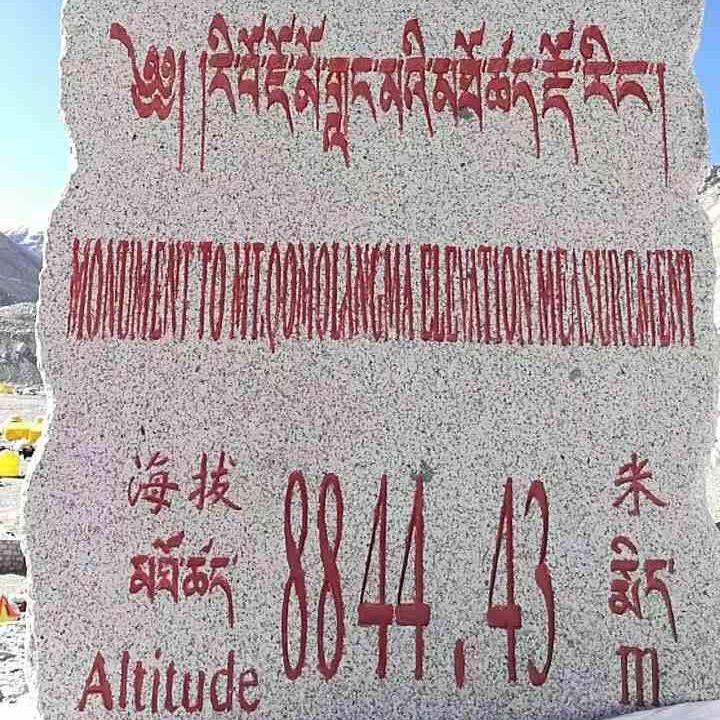 ༄༅། །རི་བོ་ཇོ་མོ་གླང་མའི་མཐོ་ཚད་རྡོ་རིང་།
MONUMENT TO MT.QOMOLANGMA ELEVATION MEASUREMENT
海拔 米
མཐོ་ཚད་ 8844.43
Altitude m